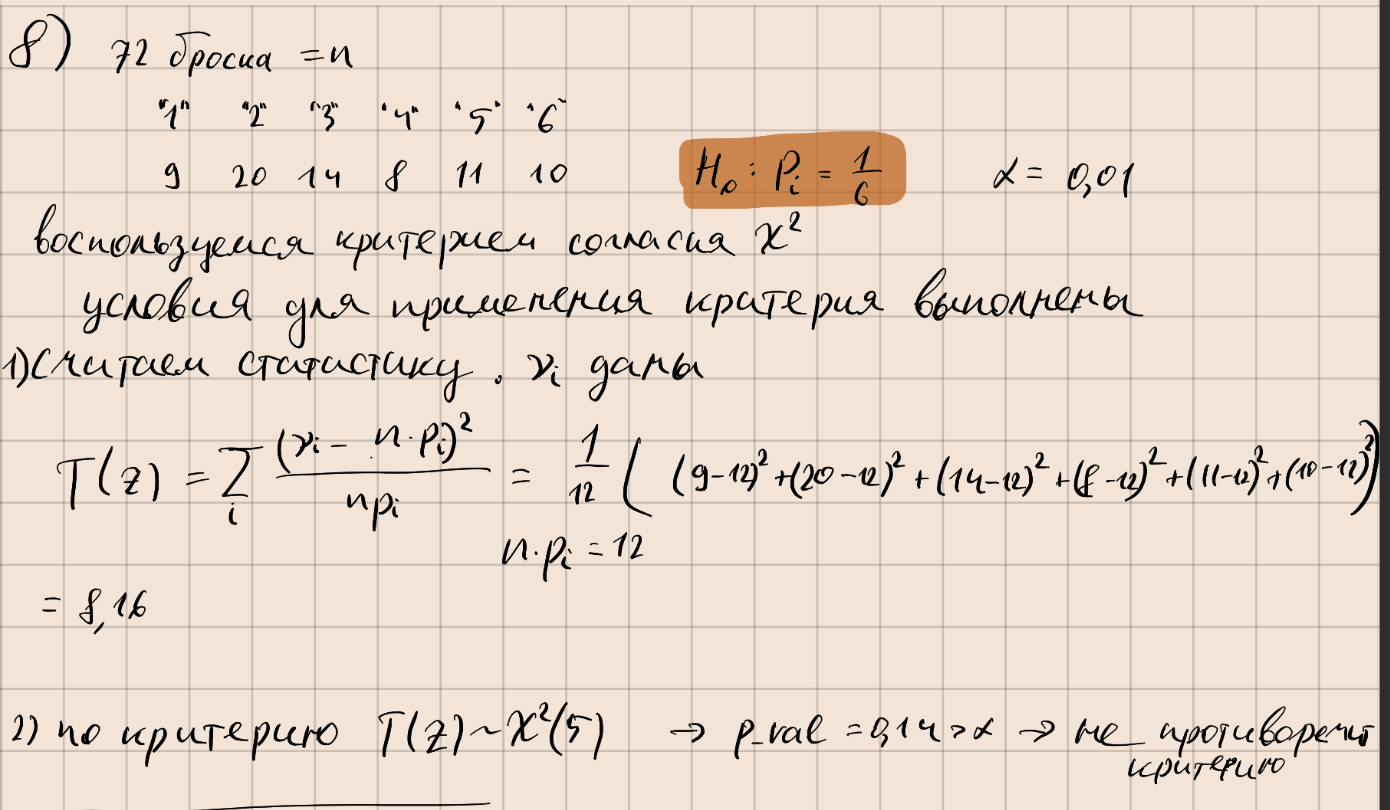 8) 72 броска = n
"1" "2" "3" "4" "5" "6"
9 20 14 8 11 10
H₀ : Pᵢ = 1/6 α = 0,01
воспользуемся критерием согласия χ²
условия для применения критерия выполнены
1) Считаем статистику . νᵢ даны
T(z) = Σᵢ (νᵢ - n·pᵢ)² / npᵢ = 1/12 ( (9-12)² + (20-12)² + (14-12)² + (8-12)² + (11-12)² + (10-12)² )
n·pᵢ = 12
= 8,16
2) по критерию T(z) ~ χ²(5) → p_val = 0,14 > α → не противоречит
критерию